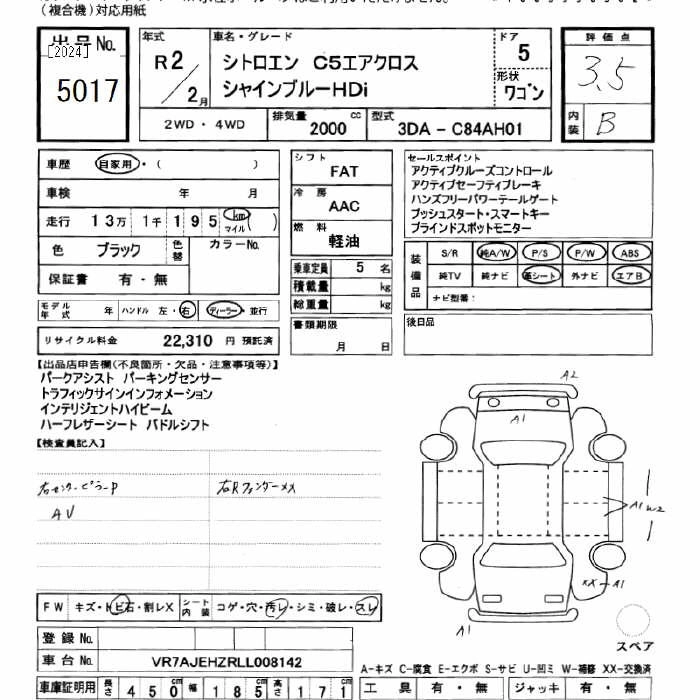 (複合機)対応用紙
出品No.
[2024]
5017
年式
R2/2月
車名・グレード
シトロエン C5エアクロス
シャインブルーHDi
ドア
5
形状
ワゴン
2WD・4WD
排気量 2000 cc
型式 3DA-C84AH01
評価点
3.5
内装 B
車歴 自家用・( )
車検 年 月
走行 13万 1千 195 km マイル ( )
色 ブラック 色替 カラーNo.
保証書 有・無
モデル年式 年 ハンドル 左・右 ディーラー・並行
リサイクル料金 22,310 円 預託済
シフト
FAT
冷房
AAC
燃料
軽油
乗車定員 5 名
積載量 kg
総重量 kg
書類期限
月 日
セールスポイント
アクティブクルーズコントロール
アクティブセーフティブレーキ
ハンズフリーパワーテールゲート
プッシュスタート・スマートキー
ブラインドスポットモニター
装備品
S/R 純A/W P/S P/W ABS
純TV 純ナビ 革シート 外ナビ エアB
ナビ型番:
後日品
【出品店申告欄(不良箇所・欠品・注意事項等)】
パークアシスト パーキングセンサー
トラフィックサインインフォメーション
インテリジェントハイビーム
ハーフレザーシート パドルシフト
【検査員記入】
右センターピラーP
右Rフェンダーメス
AV
A2
A1
A1 W2
XX A1
A1
スペア
FW キズ・トビ石・割レX シート内装 コゲ・穴・汚レ・シミ・破レ・スレ
登録No.
車台No. VR7AJEHZRLL008142
車庫証明用 長さ 450 cm 幅 185 cm 高さ 171 cm
A-キズ C-腐食 E-エクボ S-サビ U-凹ミ W-補修 XX-交換済
工具 有・無 ジャッキ 有・無